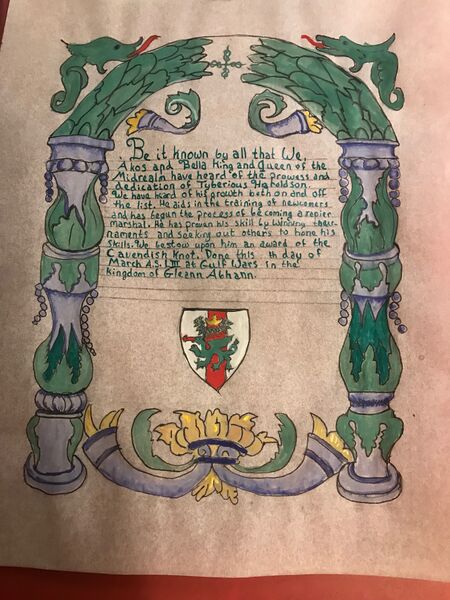 Be it known by all that We,
Akos and Bella King and Queen of the
Midrealm have heard of the prowess and
dedication of Tyberious Haroldson.
We have heard of his growth both on and off
the list. He aids in the training of newcomers
and has begun the process of becoming a rapier
marshal. He has proven his skill by winning
naments and seeking out others to hone his
skills. We bestow upon him an award of the
Cavendish Knot. Done this day of
March A.S. LIII at Gulf Wars in the
kingdom of Gleann Abhann.